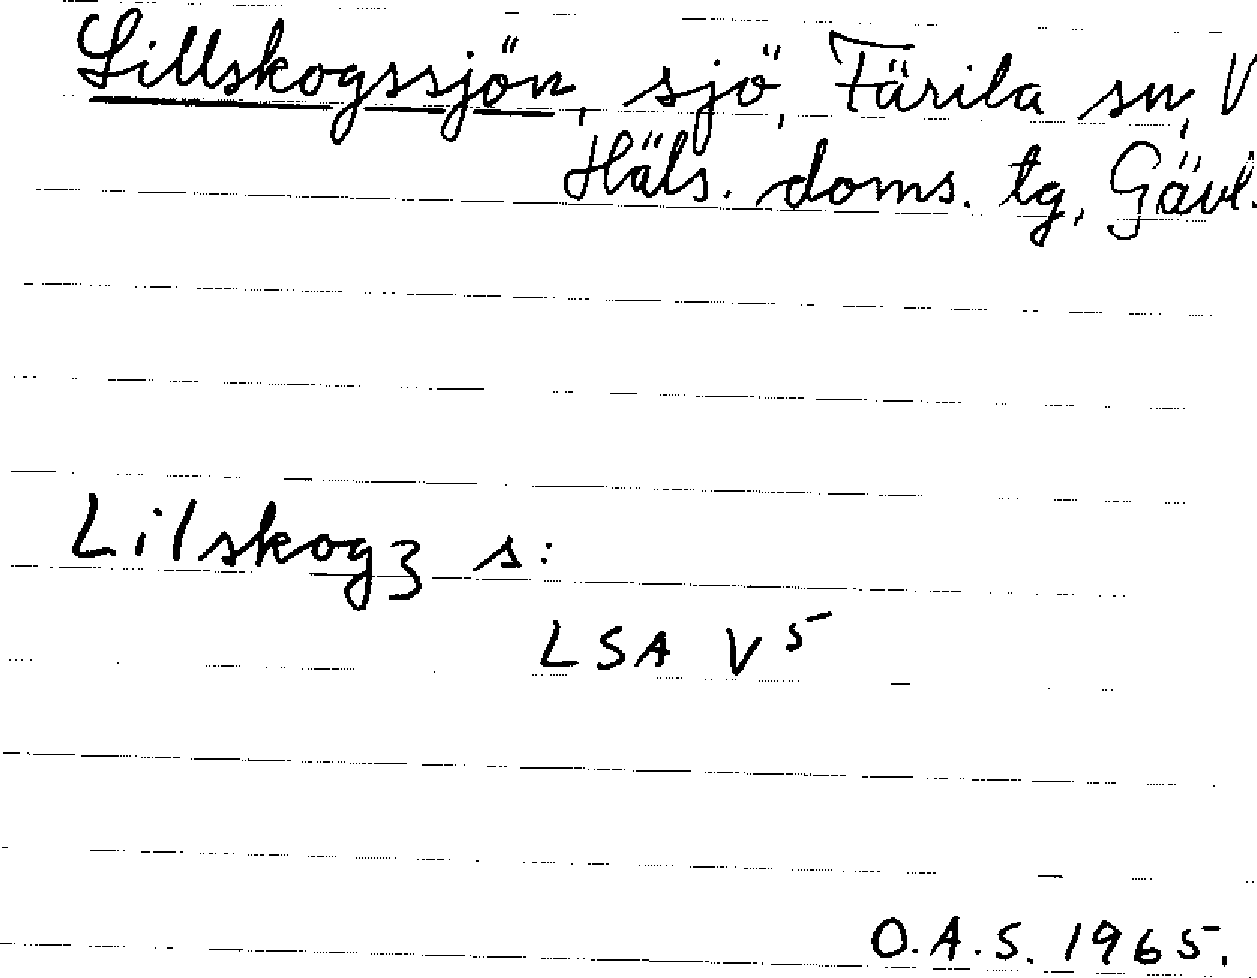 Lillskogssjön, sjö, Färila sn, V
Häls. doms. tg, Gävl.
Lilskogʒ s:
LSA V 5
O.A.S. 1965.